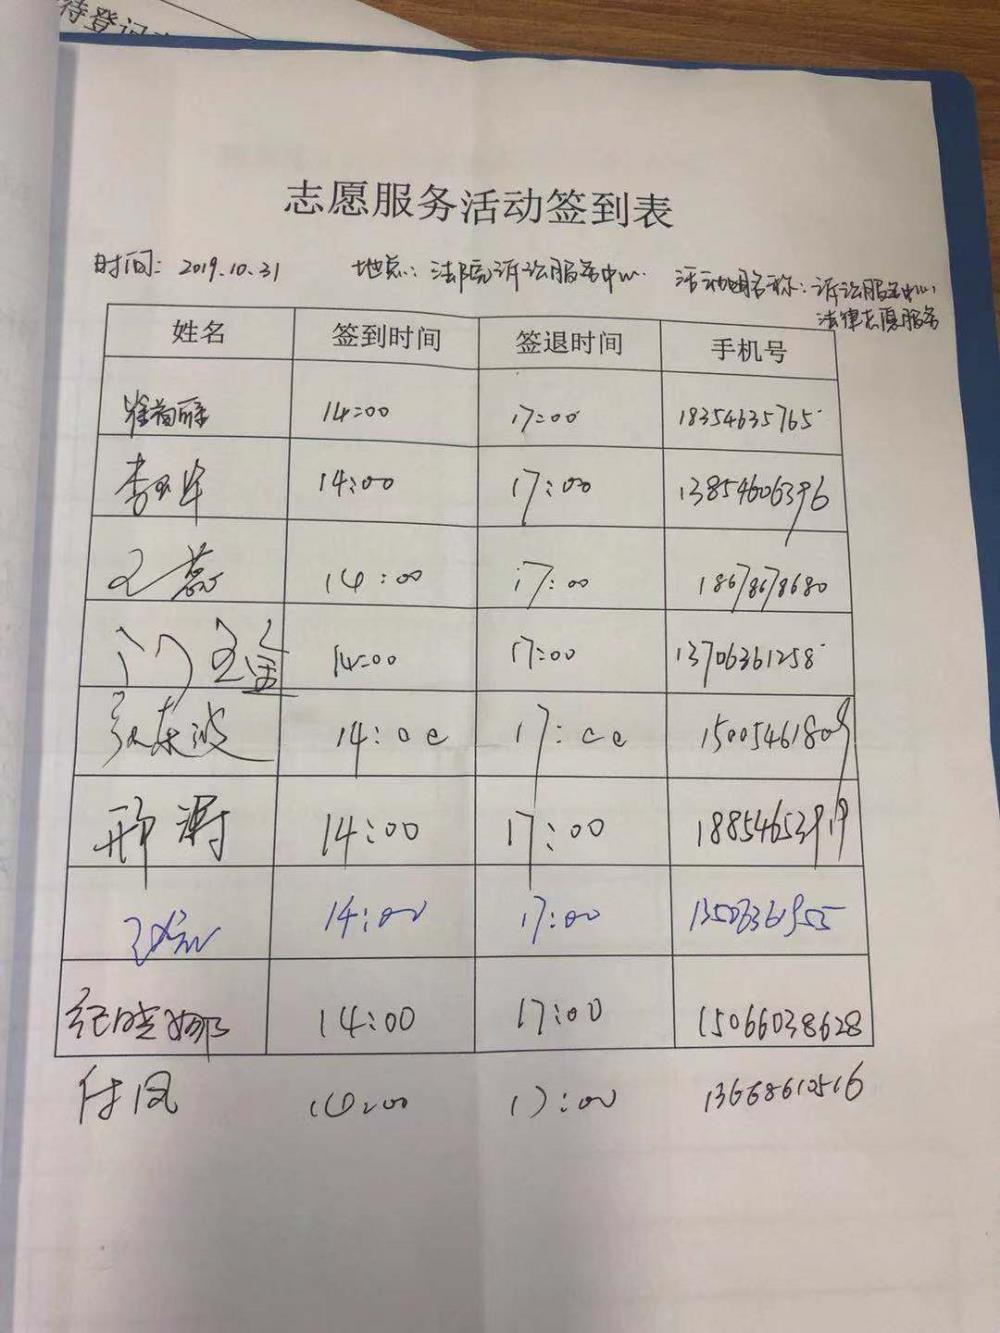 待登记
志愿服务活动签到表
时间: 2019.10.31 地点: 法院诉讼服务中心 活动名称: 诉讼服务中心
法律志愿服务
姓名 签到时间 签退时间 手机号
14:00 17:00 18354635765
14:00 17:00 13854606396
14:00 17:00 18678678680
14:00 17:00 13706361258
张东波 14:00 17:00 15005461809
邢涛 14:00 17:00 18854653919
14:00 17:00
纪晓娜 14:00 17:00 15066038628
付凤 14:00 17:00